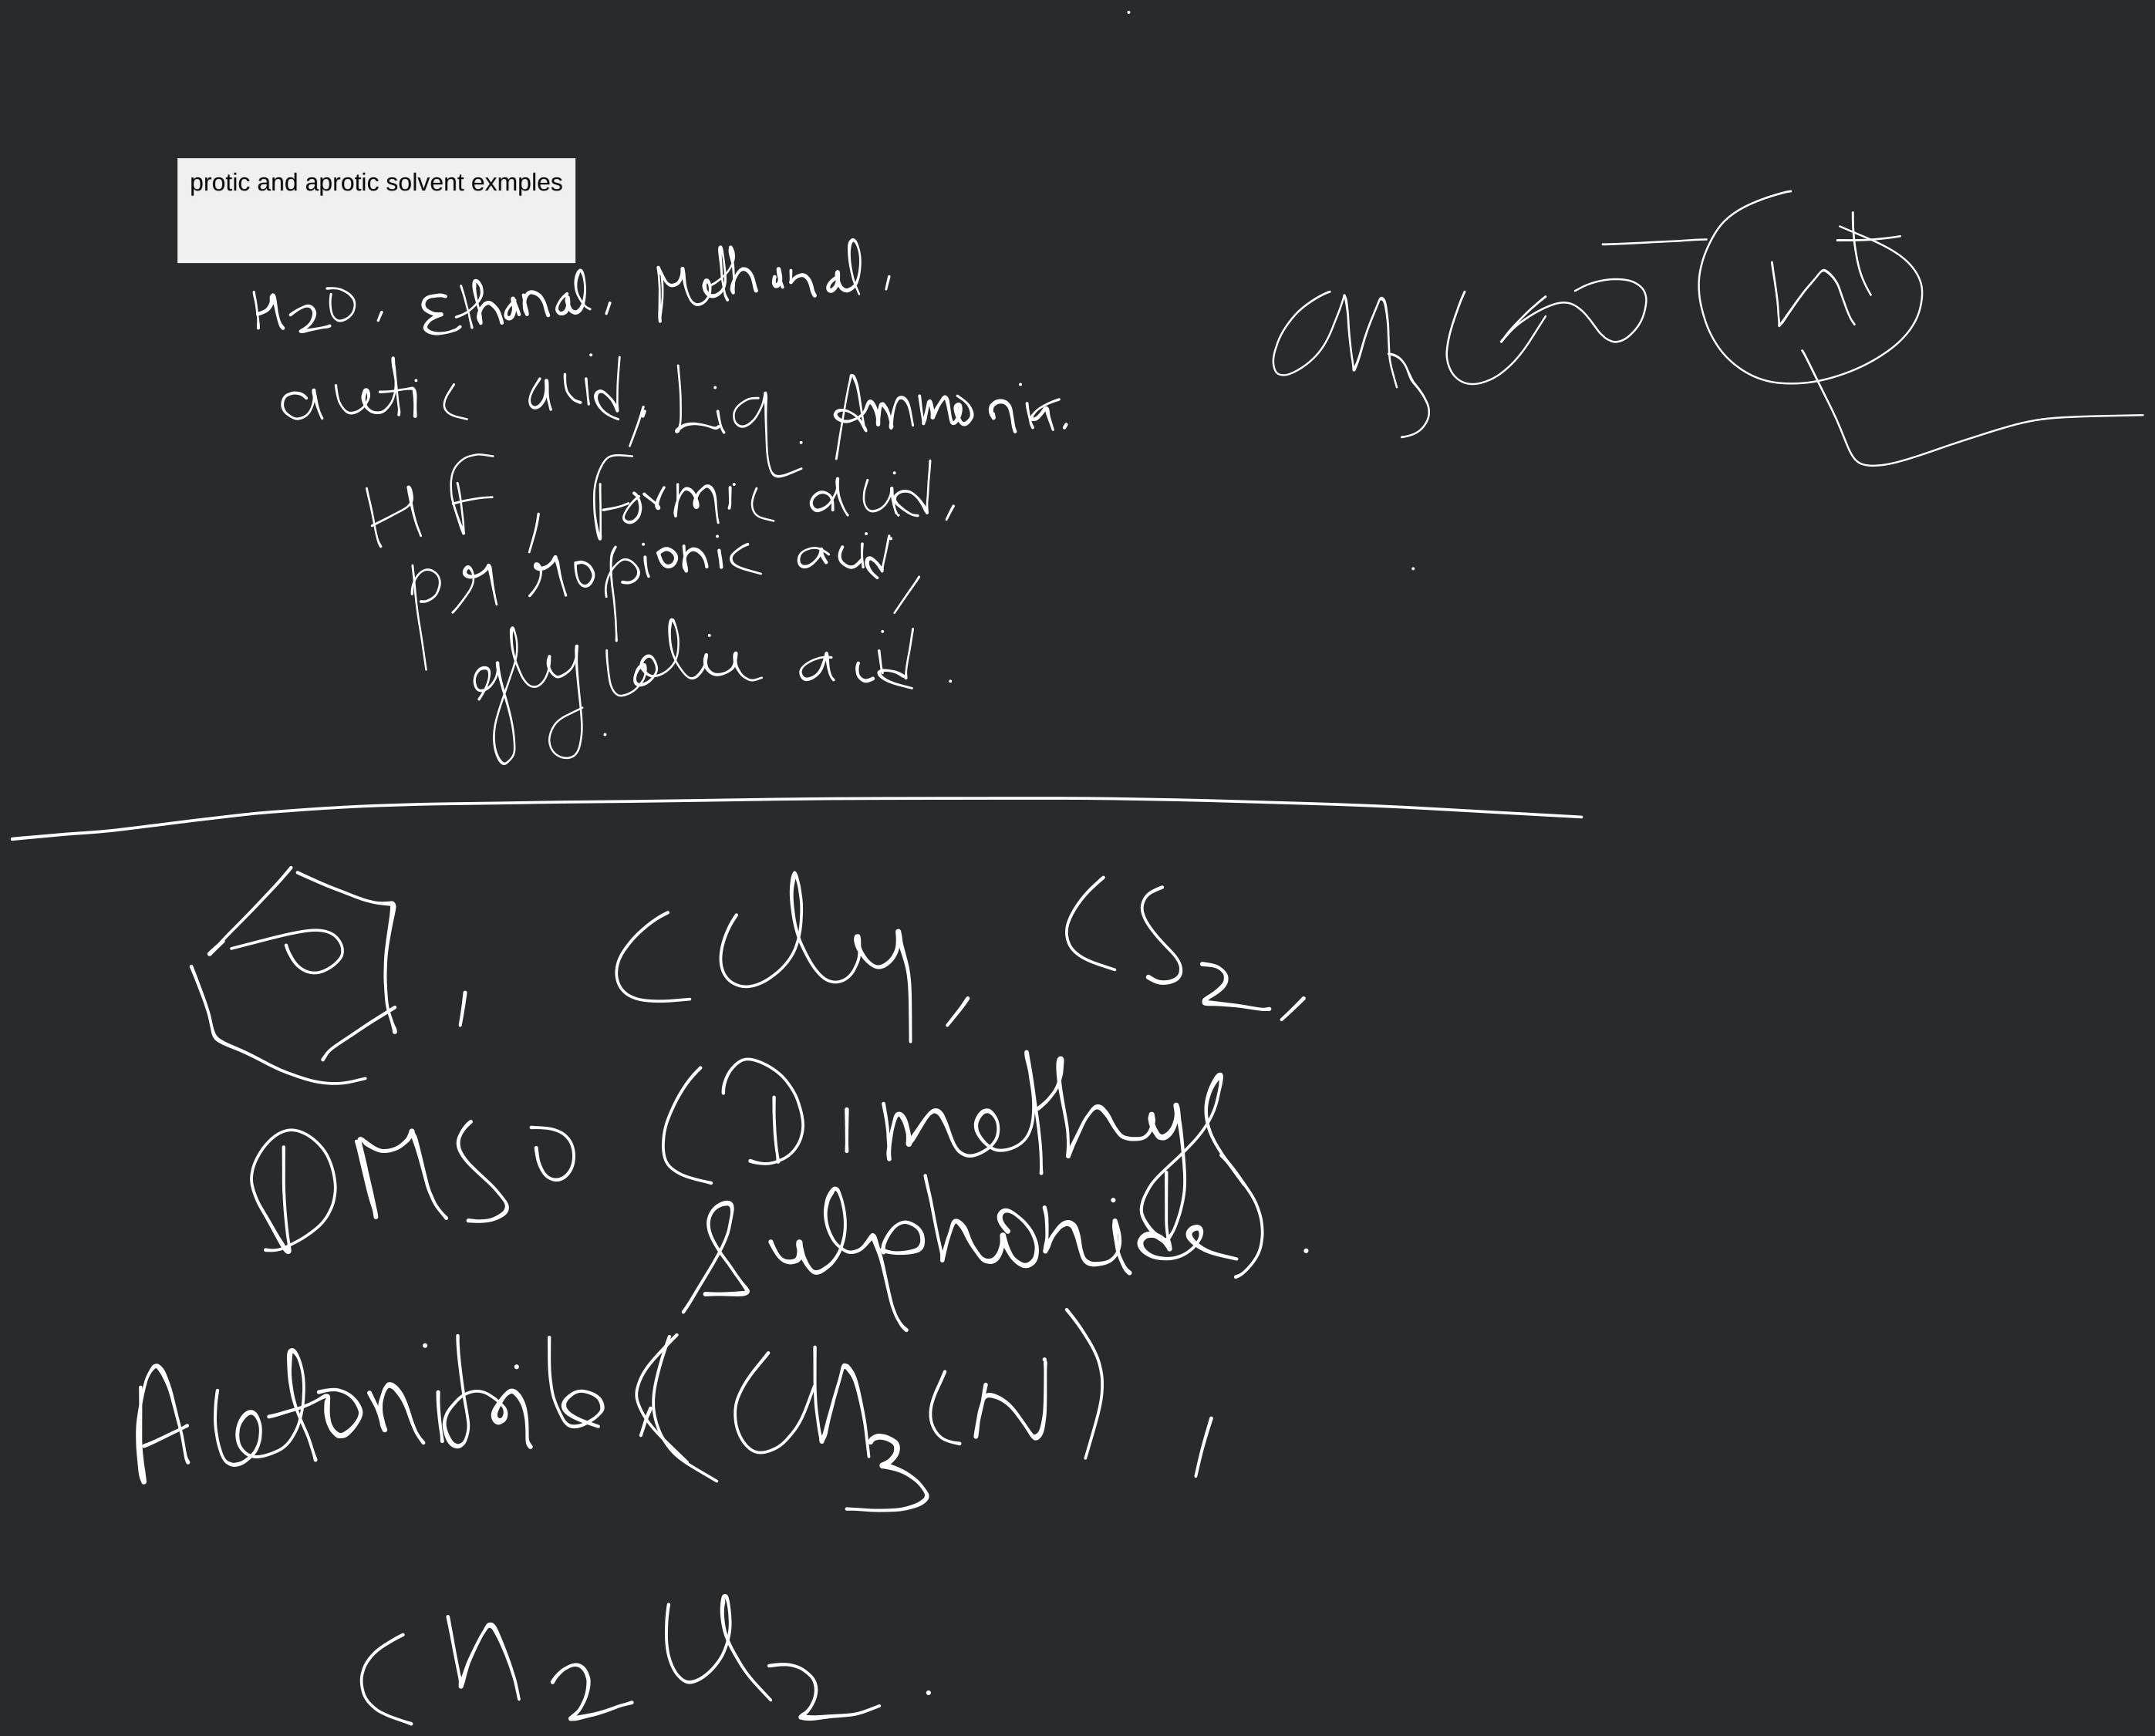 protic and aprotic solvent exmples
H2O, Ethanol, methanol,
acetic acid, Liq. Ammonia.
CH3COO H+
HF, Formic acid,
propionic acid,
glycolic acid.
, CCl4, CS2,
DMSO (Dimethyl
Sulphoxide).
Acetonitrile (CH3CN),
CH2Cl2.